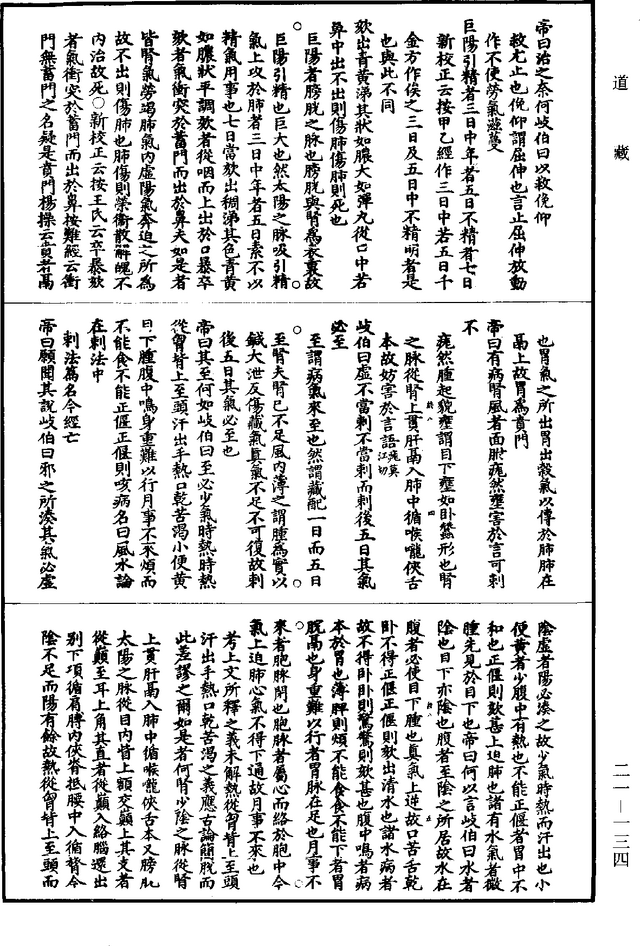 道藏
帝曰治之奈何岐伯曰以救俛仰
救尤止也俛仰謂屈伸也言止屈伸放動
作不使勞氣滋蔓
巨陽引精者三日中年者五日不精者七日
新校正云按甲乙經作三日中若五日千
金方作候之三日及五日中不精明者是
也與此不同
欬出青黃涕其狀如膿大如彈丸從口中若
鼻中出不出則傷肺傷肺則死也
巨陽者膀胱之脉也膀胱與腎為表裏故
巨陽引精也巨大也然太陽之脉吸引精
氣上攻於肺者三日中年者五日素不以
精氣用事也七日當欬出稠涕其色青黃
如膿狀平調欬者從咽而上出於口暴卒
欬者氣衝突於蓄門而出於鼻夫如是者
皆腎氣勞竭肺氣內虛陽氣奔迫之所為
故不出則傷肺也肺傷則榮衛散解魄不
內治故死○新校正云按王氏云卒暴欬
者氣衝突於蓄門而出於鼻按難經云衝
門無蓄門之名疑是賁門楊操云賁者鬲
也胃氣之所出胃出穀氣以傳於肺肺在
鬲上故胃為賁門
帝曰有病腎風者面胕痝然壅害於言可刺
不
痝然腫起貌壅謂目下壅如卧蠶形也腎
之脉從腎上貫肝鬲入肺中循喉嚨俠舌
本故妨害於言語痝莫江切
岐伯曰虛不當刺不當刺而刺後五日其氣
必至
至謂病氣來至也然謂藏配一日而五日
至腎夫腎已不足風內薄之謂腫為實以
鍼大泄反傷藏氣真氣不足不可復故刺
後五日其氣必至也
帝曰其至何如岐伯曰至必少氣時熱時熱
從胷背上至頭汗出手熱口乾苦渴小便黃
目下腫腹中鳴身重難以行月事不來煩而
不能食不能正偃正偃則咳病名曰風水論
在刺法中
刺法篇名今經亡
帝曰願聞其說岐伯曰邪之所湊其氣必虛
陰虛者陽必湊之故少氣時熱而汗出也小
便黃者少腹中有熱也不能正偃者胃中不
和也正偃則欬甚上迫肺也諸有水氣者微
腫先見於目下也帝曰何以言岐伯曰水者
陰也目下亦陰也腹者至陰之所居故水在
腹者必使目下腫也真氣上逆故口苦舌乾
卧不得正偃正偃則欬出清水也諸水病者
故不得卧卧則驚驚則欬甚也腹中鳴者病
本於胃也薄脾則煩不能食食不能下者胃
脘鬲也身重難以行者胃脉在足也月事不
來者胞脉閉也胞脉者屬心而絡於胞中今
氣上迫肺心氣不得下通故月事不來也
考上文所釋之義未解熱從胷背上至頭
汗出手熱口乾苦渴之義應古論簡脫而
此差謬之爾如是者何腎少陰之脉從腎
上貫肝鬲入肺中循喉嚨俠舌本又膀胱
太陽之脉從目內眥上額交巔上其支者
從巔至耳上角其直者從巔入絡腦還出
別下項循肩髆內俠脊抵腰中入循膂今
陰不足而陽有餘故熱從胷背上至頭而
二一—一三四